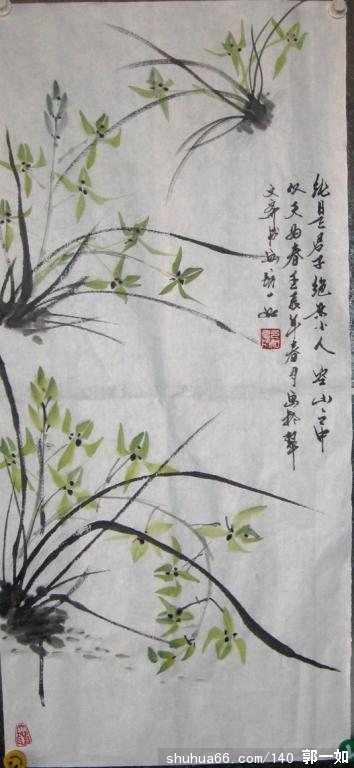 纯是君子绝无小人空山之中
以天为春壬辰年春月画于翠
文斋书画郭一如
shuhua66.com/140 郭一如